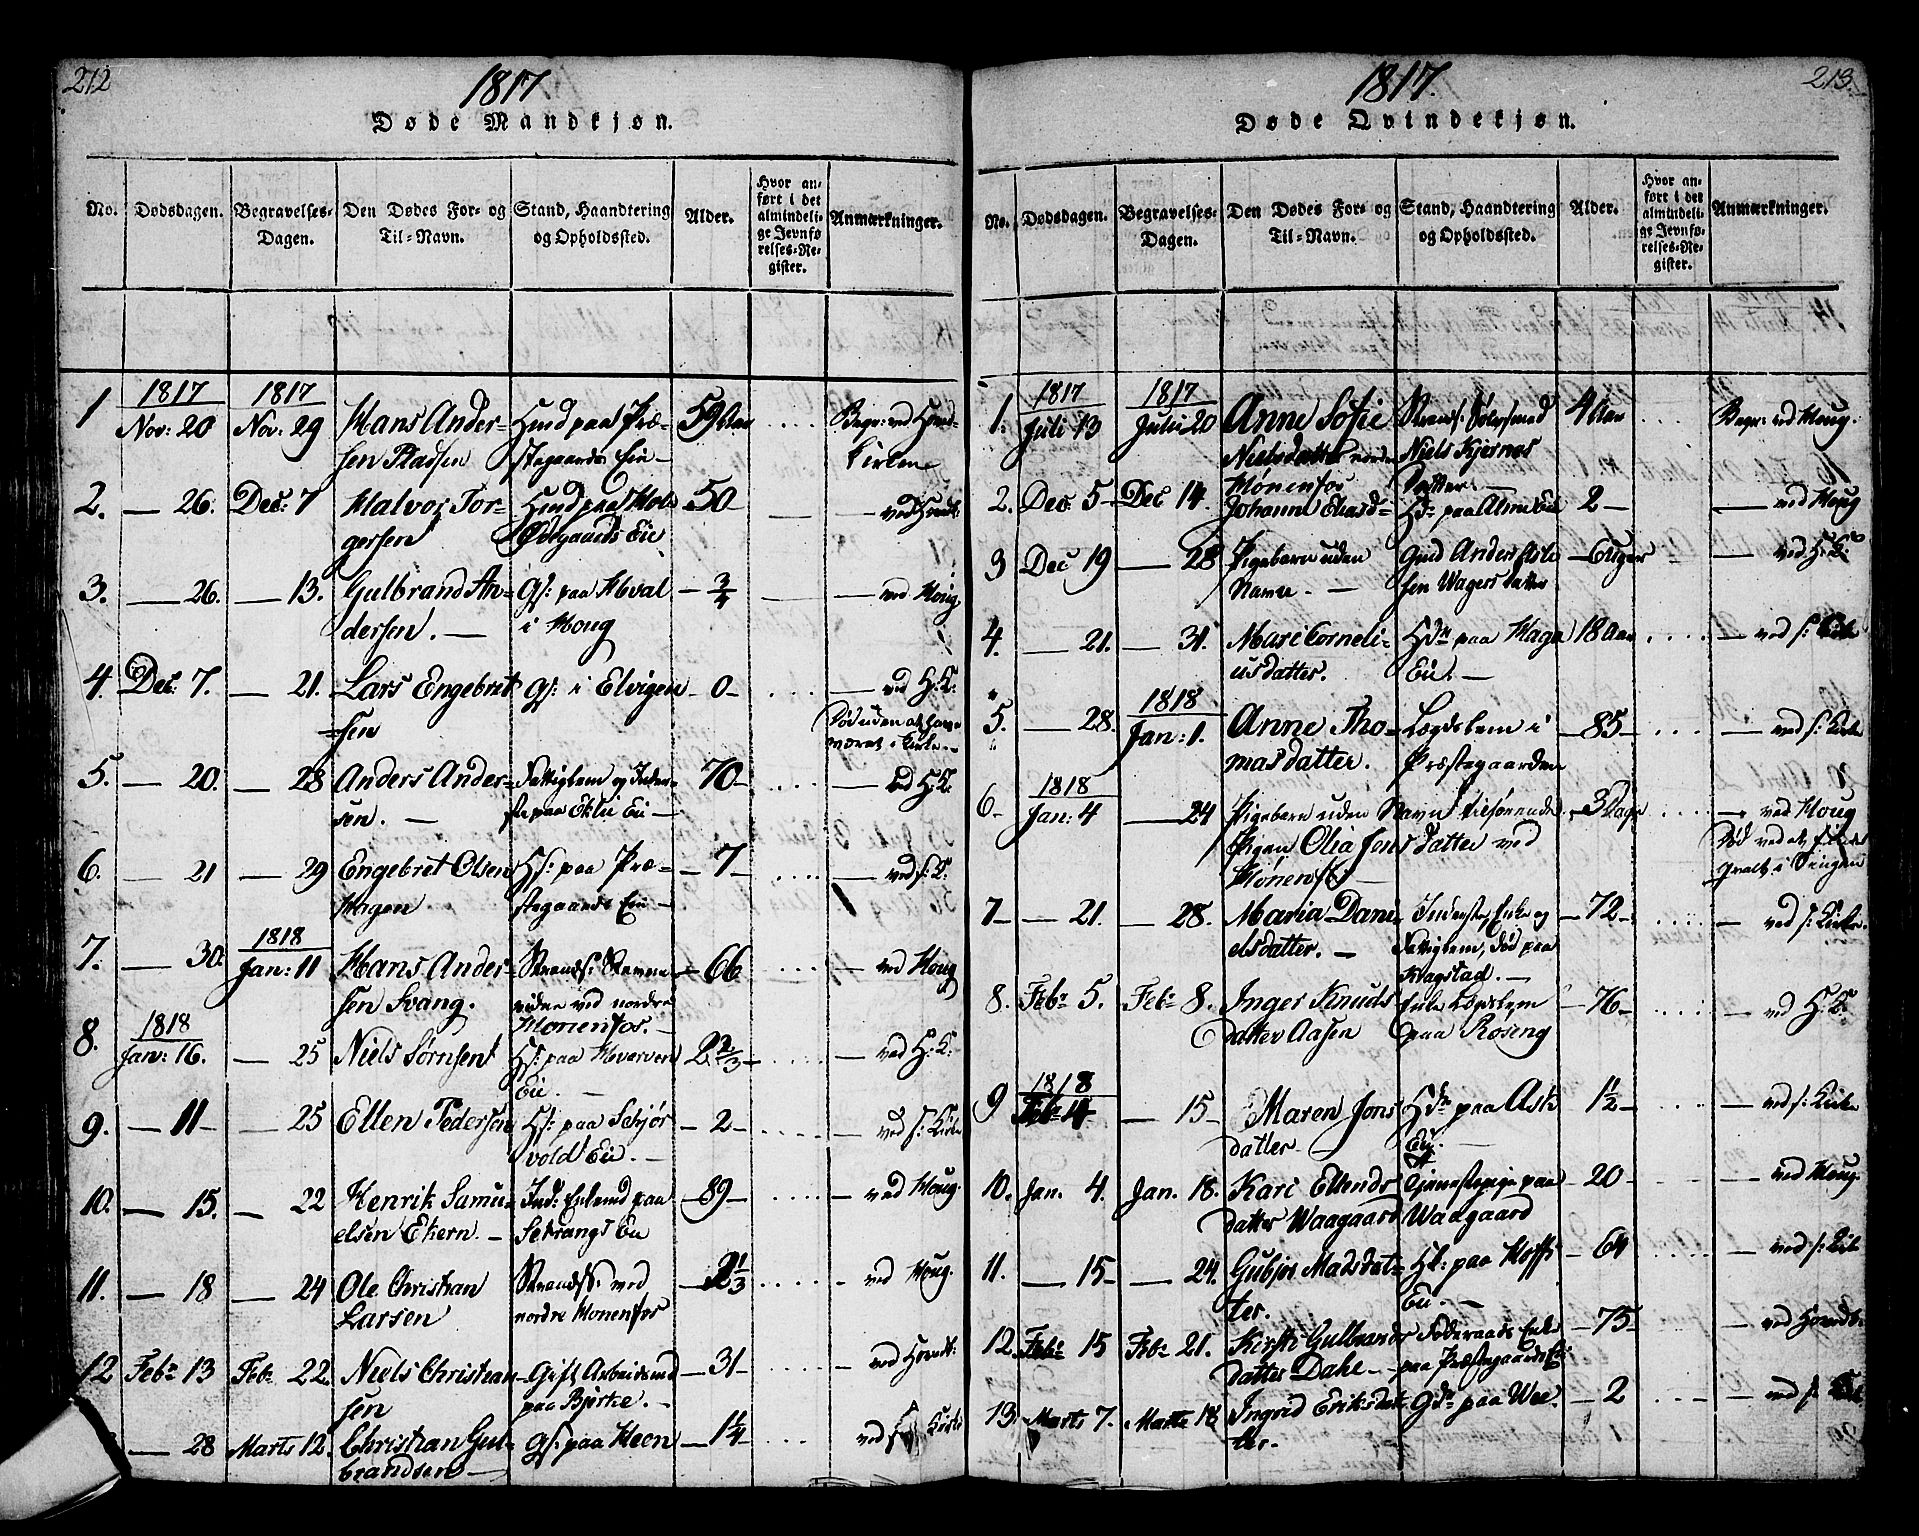 212
1817
Døde Mandkjøn.
No. Dødsdagen. Begravelses-Dagen. Den Dødes For- og Til-Navn. Stand, Haandtering og Opholdssted. Alder. Hvor anført i det almindelige Jevnførelses-Register. Anmærkninger.
1 1817 Nov: 20 1817 Nov: 29 Hans Ander-
sen Pladsen Huusd paa Præ-
stegaards Eie — 59 Aar Begr: ved Hovedkirken
2. — 26. Dec: 7 Halvor Tor-
gersen Huusd paa Hols
Ødegaards Eie 50 — ved Hovedk:
3. — 26. — 13. Gulbrand An-
dersen. — Gs: paa Hval
i Houg — 3/4 — ved Houg
4. Dec: 7. — 21. Lars Engebret-
sen Gs: i Elvigen — 0 — — ved H: K:
Død uden at have været i Kirke. —
5. — 20. — 28 Anders Ander-
sen. — Fattiglem og Inder-
ste paa Eie — 70 — — ved H: K:
6. — 21 — 29 Engebret Olsen
Hagen Hs: paa Præ-
stegaards Eie — — 7 — — ved s: K:
7. — 30. 1818 Jan: 11 Hans Ander-
sen Svang. Strands:
ved nordre
Hønenfos. — 66 — ved Houg
8. 1818 Jan: 16. — 25 Niels Sørnsen Hs: paa Hverven
Eie. — 2 2/3 — — ved H: K:
9. — 11 — — 25 Ellen Pedersen Hs: paa Schjør
vold Eie. — — 2 — — ved s: Kirke
10. — 15. — 22 Henrik Samu-
elsen Ekern. — Ind: Enkemd paa
Setrangs Eie — 89 — — ved Houg.
11. — 18 — 24 Ole Christian
Larsen Strands: ved
nordre Honenfos — 2 1/3 — ved Houg.
12 Feb: 13 Feb: 22. Niels Christian-
sen Gift Arbeidsmd
paa Bjerke. — — 31 — — ved Hovedk:
— 28 Marts 12. Christian Gul-
brandsen — Gs: paa Heen — 1 1/4 — ved s: Kirke
213.
1817.
Døde Qvindekjøn.
No. Dødsdagen. Begravelses-Dagen. Den Dødes For- og Til-Navn. Stand, Haandtering og Opholdssted. Alder. Hvor anført i det almindelige Jevnførelses-Register. Anmærkninger.
1. 1817 Juli 13 1817 Julii 20 Anne Sofie
Nielsdatter nordre
Hønenfos Strands:
Niels Kjernes
Datter. — 4 Aar Begr: ved Houg.
2. Dec: 5 — Dec 14. Johanne Eliasd- Hdr paa Alme Eie 2 — — ved Houg
3 Dec 19 — 28 Pigebarn uden
Navn. — Gmd Anders Asle
sen Wagers datter — 6 Uger — ved H: K:
4. — 21. — 31. Mari Corneli-
usdatter. Hdr paa Haga
Eie. — 18 Aar — ved s: Kirke
5. — 28. 1818 Jan: 1. Anne Tho-
masdatter. Lægdslem i
Præstegaarden — 85 — — ved s: Kirke
6 — 1818 Jan: 4 — 24 Pigebarn uden Navn tilhørende
Pigen Olia Jensdatter ved
Hønenf: — — 3 Dage — ved Houg
Død ved at
qvalt i Sengen
7 — — 21. — 28. Maria Dani-
elsdatter. — Inderste, Enke og
Fattiglem, død paa
Hagstad. — — 72 — — ved s: Kirke.
8. Feb: 5. Feb: 8. Inger Knuds
datter Aasen Enke Lægdslem
paa Roseng — 76 — — ved H: K:
9 1818 Feb: 14 — 15 — Maren Jons
datter — Hdr paa Ask
Eie. — 1 1/2 — — ved s: Kirke
10. Jan. 4. Jan. 18. Kari Ellends
datter Waagaard Tjenestepige paa
Waagaard — 20 — — ved Houg.
11. — 15 — — 24. Gubjør Madsdat-
ter. Hk: paa Hoffs
Eie. — — 64 — ved s: Kirke
12. Feb: 15 Feb: 21. Kirsti Gulbrands
datter Dahl — Føderaads Enke
paa Præstegaards Eie — 75 — — ved Hovedk.
13 Marts 7. Marts 18 Ingrid Eriksdat-
ter. — Gdr paa Wee. — 2 — ved s: Kirke